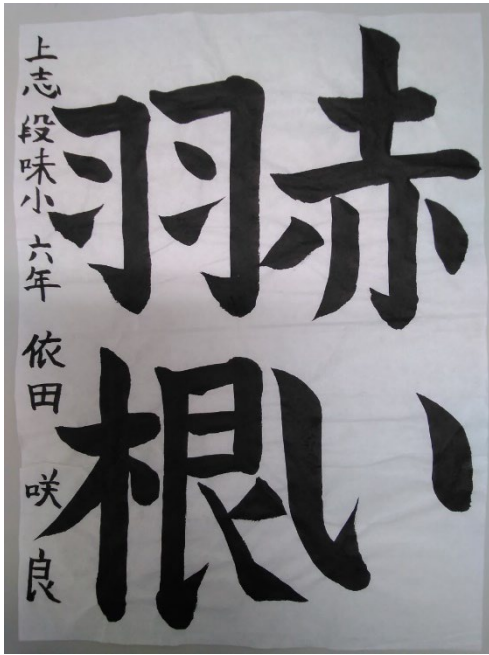 赤い
羽根
上志段味小 六年 依田 咲良